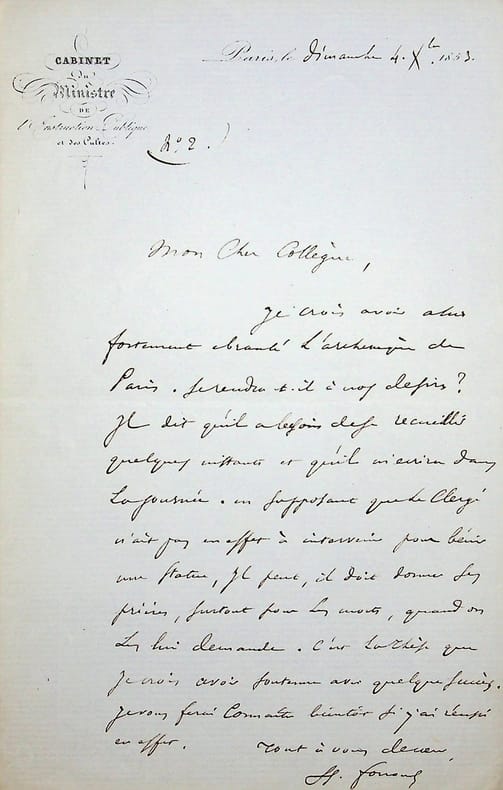 CABINET
du
Ministre
DE
l'Instruction Publique
et des Cultes.
Paris, le dimanche 4. Xbre 1853.
No. 2.
Mon Cher Collègue,
Je crois avoir
fortement ébranlé L'archevêque de
Paris. Se rendra-t-il à nos desirs?
Il dit qu'il a besoin de se recueillir
quelques instants et qu'il m'ecrira dans
La journée. en supposant que le Clergé
n'ait pas en effet à intervenir pour bénir
une Statue, Il peut, il doit donner Ses
prières, Surtout pour Les morts, quand on
Les lui demande. C'est La thèse que
Je crois avoir Soutenue avec quelque Succès.
Je vous ferai Connaitre bientôt Si j'ai réussi
en effet. tout à vous de cœur,
H. Fortoul